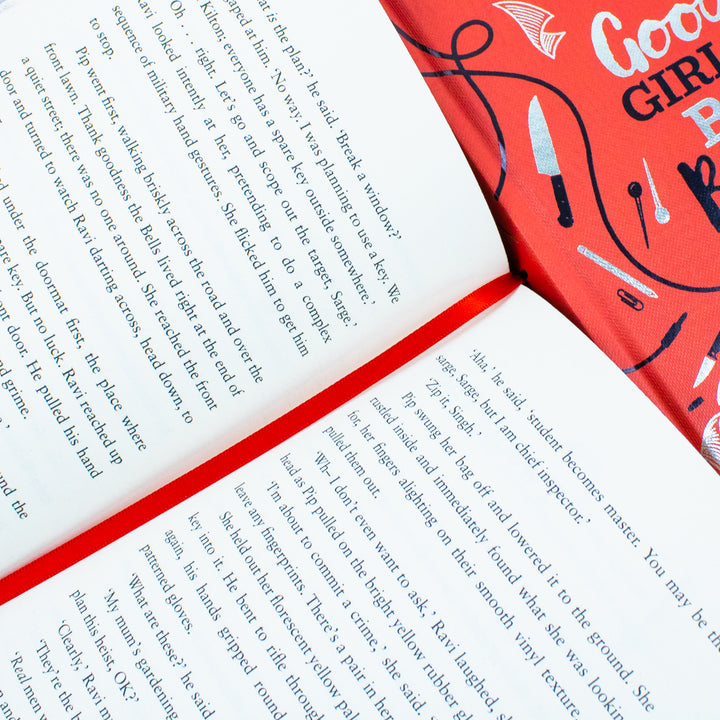 is the plan?' he said. 'Break a window?'
at him. 'No way. I was planning to use a key. We
Kilton; everyone has a spare key outside somewhere.'
Oh . . . right. Let's go and scope out the target, Sarge.'
looked intently at her, pretending to do a complex
sequence of military hand gestures. She flicked him to get
to stop.
Pip went first, walking briskly across the road and over the
front lawn. Thank goodness the Bells lived right at the end of
a quiet street; there was no one around. She reached the front
door and turned to watch Ravi darting across, head down, to
under the doormat first, the place where
key. But no luck. Ravi reached up
door. He pulled his hand
grime.
the
'Aha,' he said, 'student becomes master. You may be the
sarge, Sarge, but I am chief inspector.'
'Zip it, Singh.'
Pip swung her bag off and lowered it to the ground. She
rustled inside and immediately found what she was looking
for, her fingers alighting on their smooth vinyl texture
pulled them out.
'Wh– I don't even want to ask,' Ravi laughed,
head as Pip pulled on the bright yellow rubber
'I'm about to commit a crime,' she said.
leave any fingerprints. There's a pair in here
She held out her florescent yellow
key into it. He bent to rifle through
again, his hands gripped round
patterned gloves.
'What are these?' he said
'My mum's gardening
plan this heist, OK?'
'Clearly,' Ravi
'They're the
'Real men
Good
GIRL